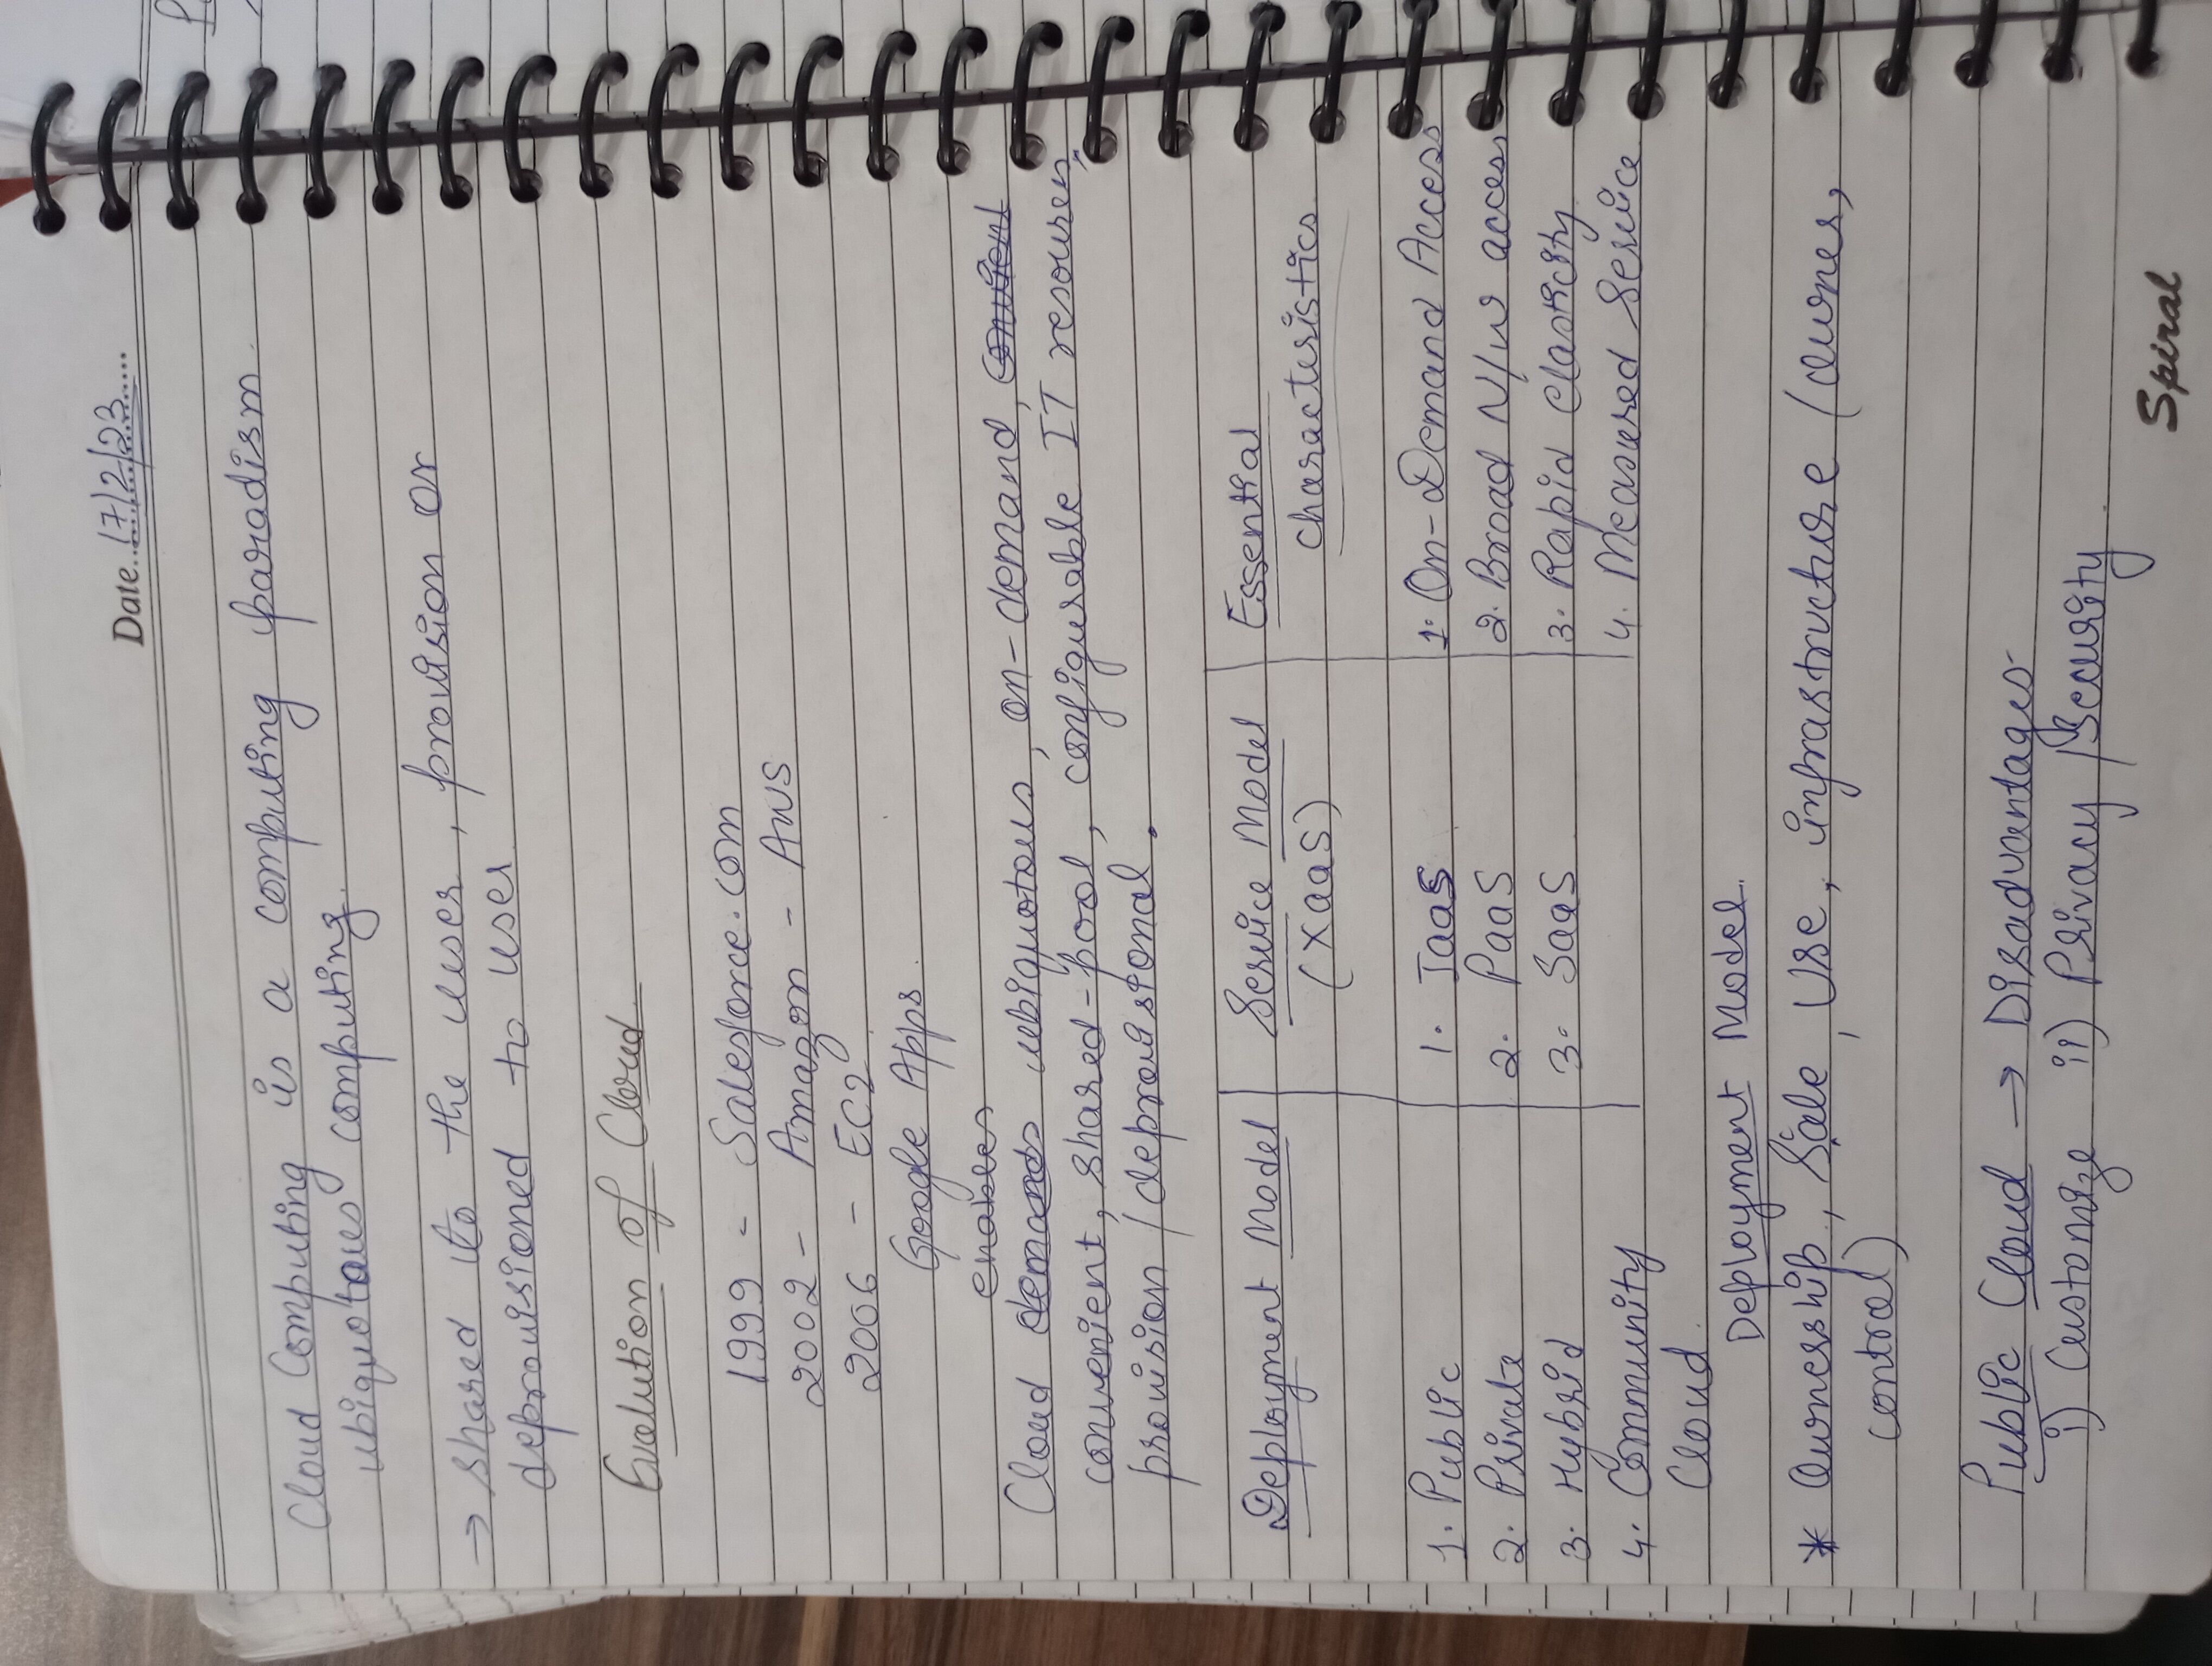 Date...17/2/23.....
Cloud Computing is a computing paradism.
ubiquotous computing.
→ shared to the user, provision or
deprovisioned to user
Evolution of Cloud
1999 - Salesforce.com
2002 - Amazon - AWS
2006 - EC2
Google Apps.
enables
Cloud demands ubiquotous, on-demand,
convenient, shared-pool, configurable IT resources,
provision / deprovistonal.
Deployment Model | Service Model | Essential
(XaaS) characteristics
1. Public 1. IaaS 1. On-Demand Access
2. Private 2. PaaS 2. Broad N/w access
3. Hybrid 3. SaaS 3. Rapid elasticity
4. Community 4. Measured Service
Cloud.
Deployment Model.
* Ownership, Sale, Use, infrastructure (owner,
control)
Public Cloud → Disadvantages
i) Customize ii) Privacy / Security
Spiral